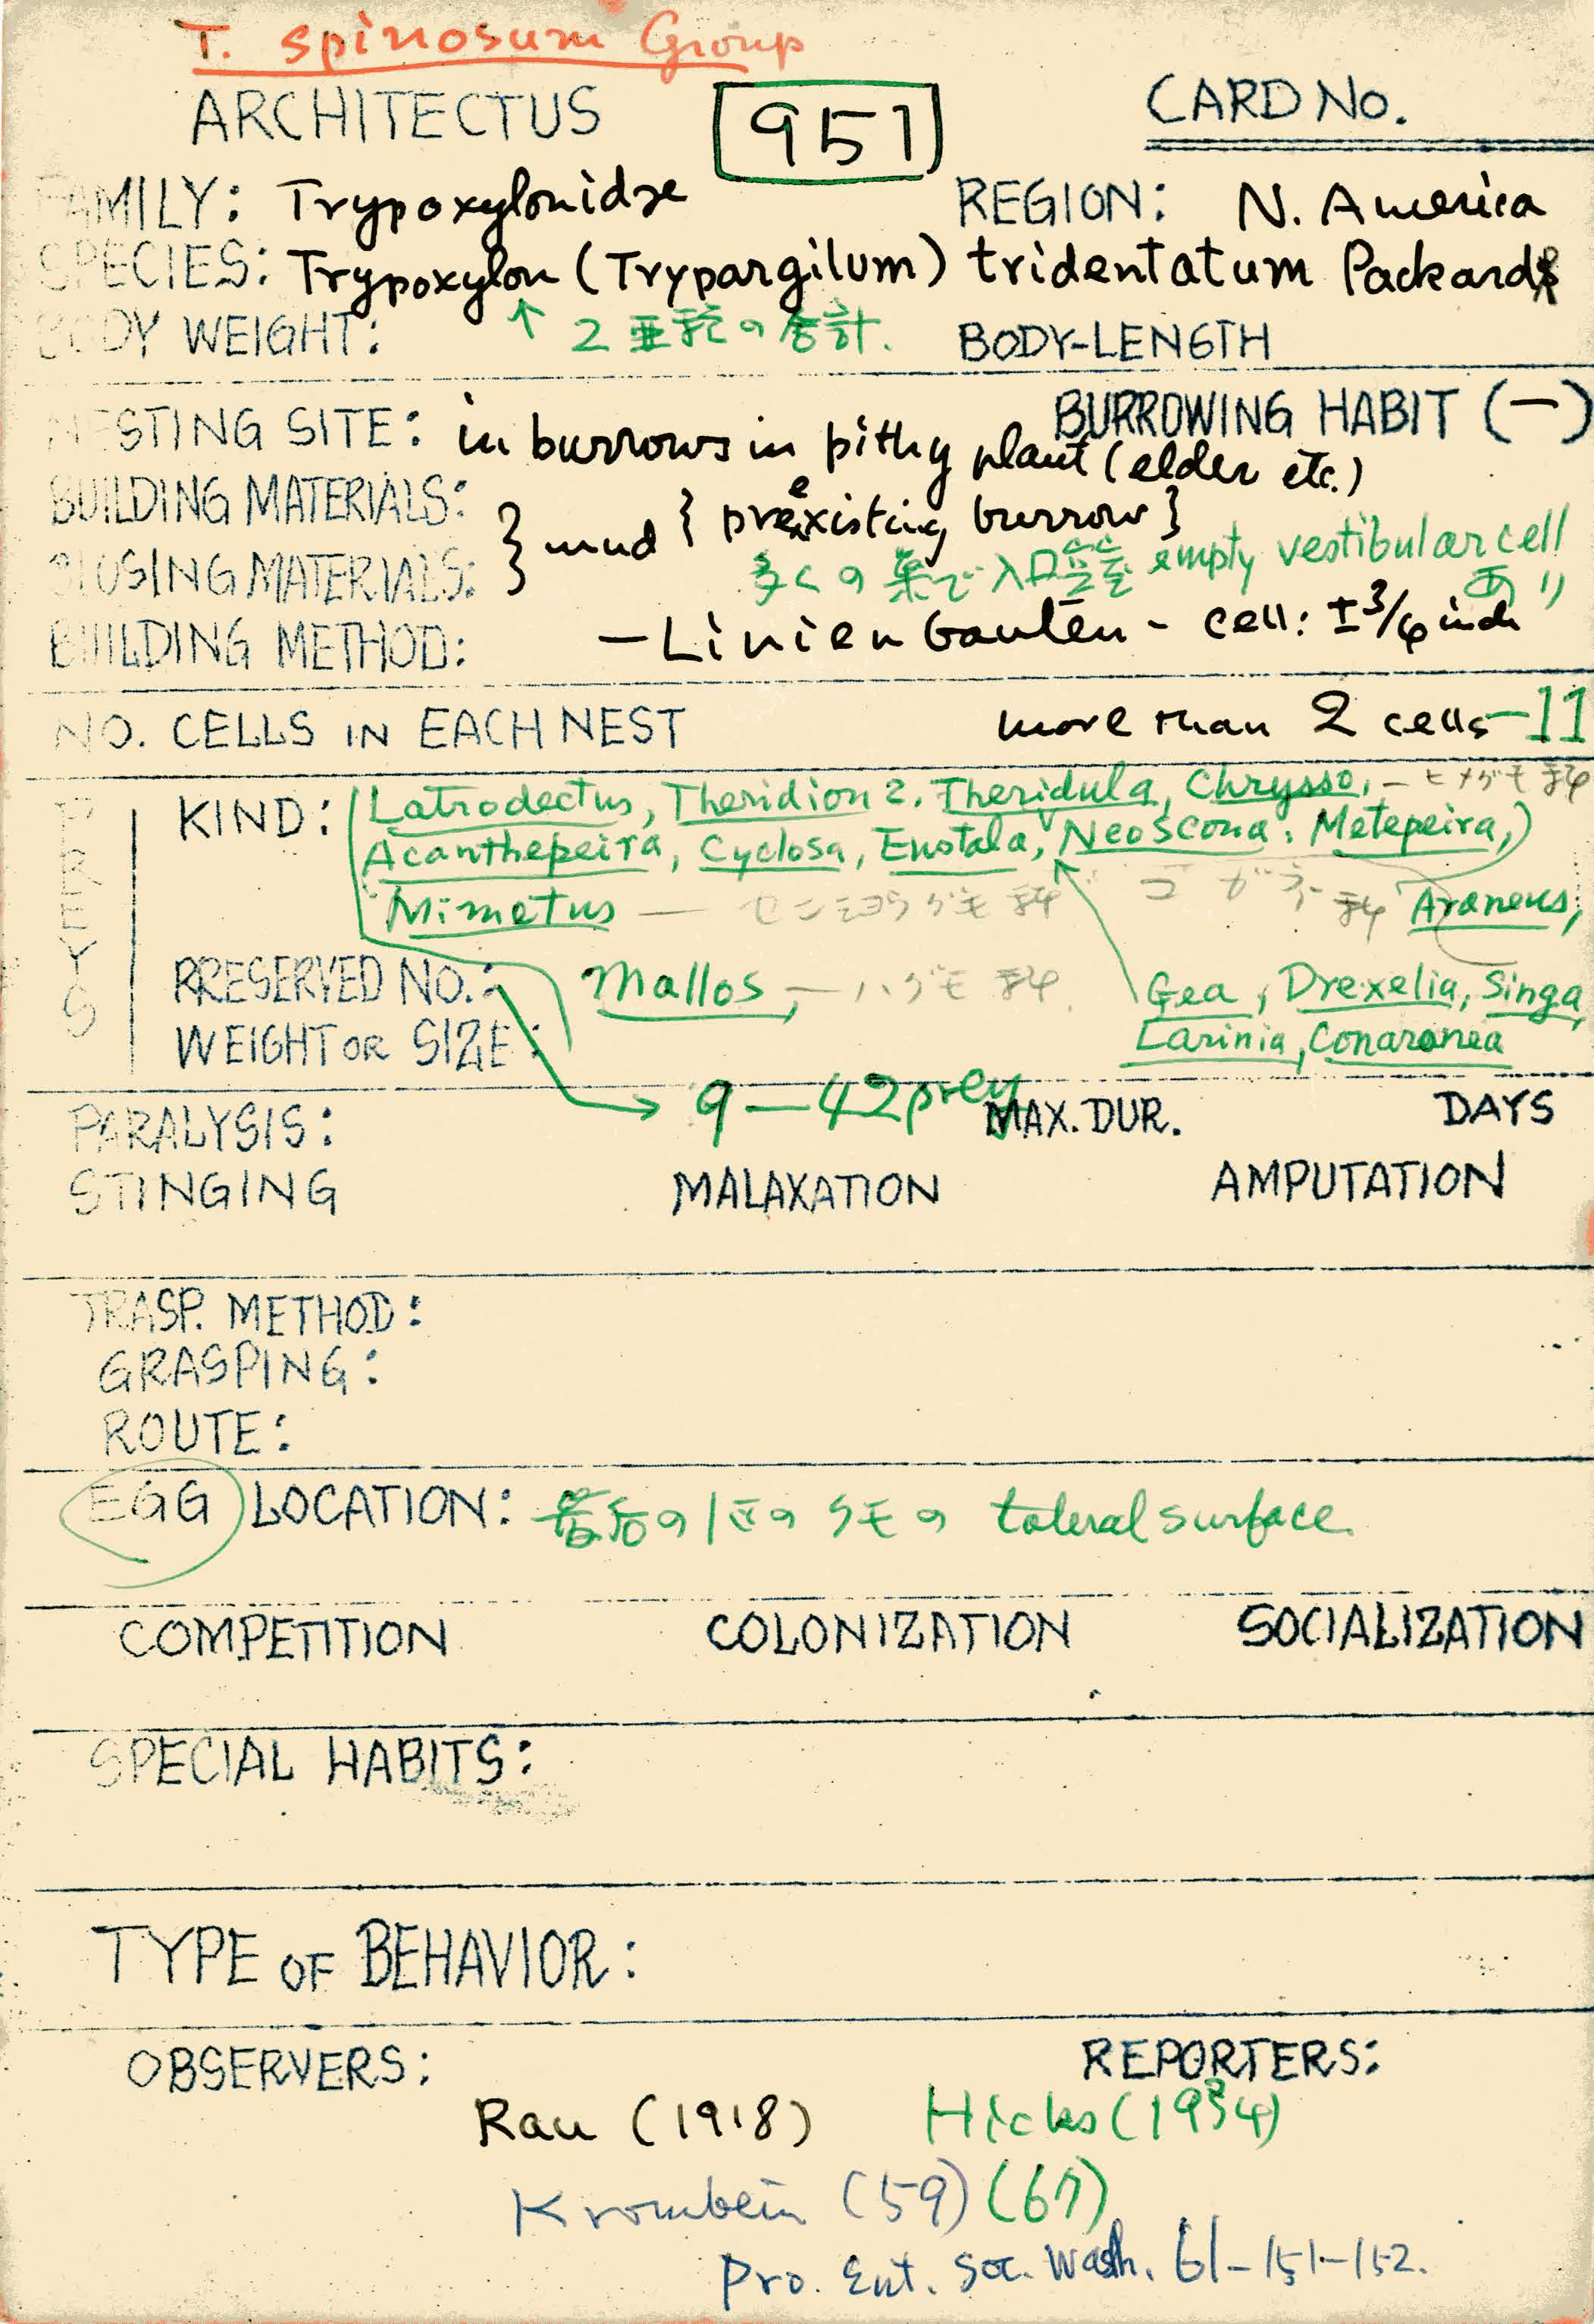 T. spinosum Group
ARCHITECTUS 951 CARD No.
FAMILY: Trypoxylonidae REGION: N. America
SPECIES: Trypoxylon (Trypargilum) tridentatum Packard
BODY WEIGHT: ↑ 2亜種の合計. BODY-LENGTH
NESTING SITE: in burrows in pithy plant (elder etc.) BURROWING HABIT (—)
BUILDING MATERIALS: } mud { preexisting burrow }
CLOSING MATERIALS: 多くの巣で入口 empty vestibular cell あり
BUILDING METHOD: — Linienbauten - cell: ±3/4 inch
NO. CELLS IN EACH NEST more than 2 cells —11
PREYS
KIND: (Latrodectus, Theridion 2, Theridula, Chrysso, — ヒメグモ科
Acanthepeira, Cyclosa, Eustala, Neoscona, Metepeira,)
Mimetus — センショウグモ科 コガネ科 Araneus,
PRESERVED NO.: Mallos, — ハグモ科 Gea, Drexelia, Singa,
WEIGHT OR SIZE: Larinia, Conaranea
→ 9—42 prey
PARALYSIS: MAX. DUR. DAYS
STINGING MALAXATION AMPUTATION
TRASP. METHOD:
GRASPING:
ROUTE:
EGG LOCATION: 最后の1匹のクモの lateral surface.
COMPETITION COLONIZATION SOCIALIZATION
SPECIAL HABITS:
TYPE OF BEHAVIOR:
OBSERVERS: REPORTERS:
Rau (1918) Hicks (1934)
Krombein (59) (67)
Pro. Ent. Soc. Wash. 61-151-152.